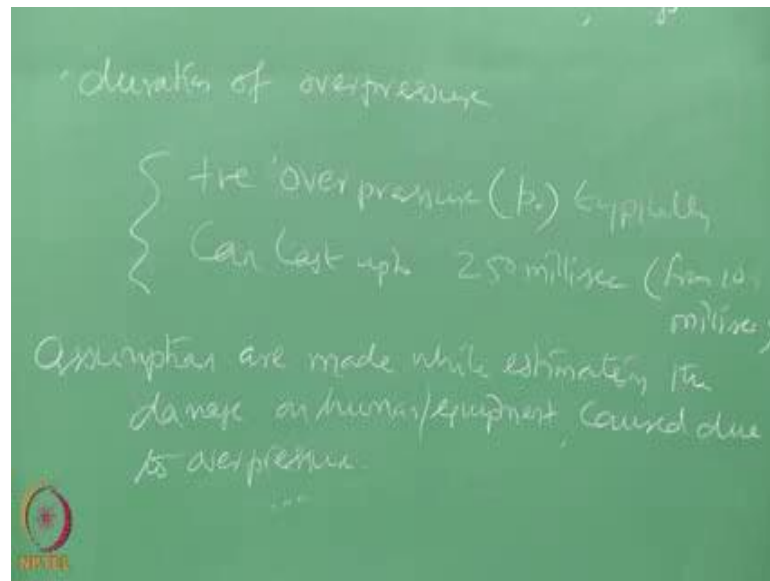 duration of overpressure
+ve overpressure (p₀) typically
can last upto 250 millisec (from 10
millisec)
Assumptions are made while estimating the
damage on human/equipment, caused due
to overpressure.
...
NPTEL